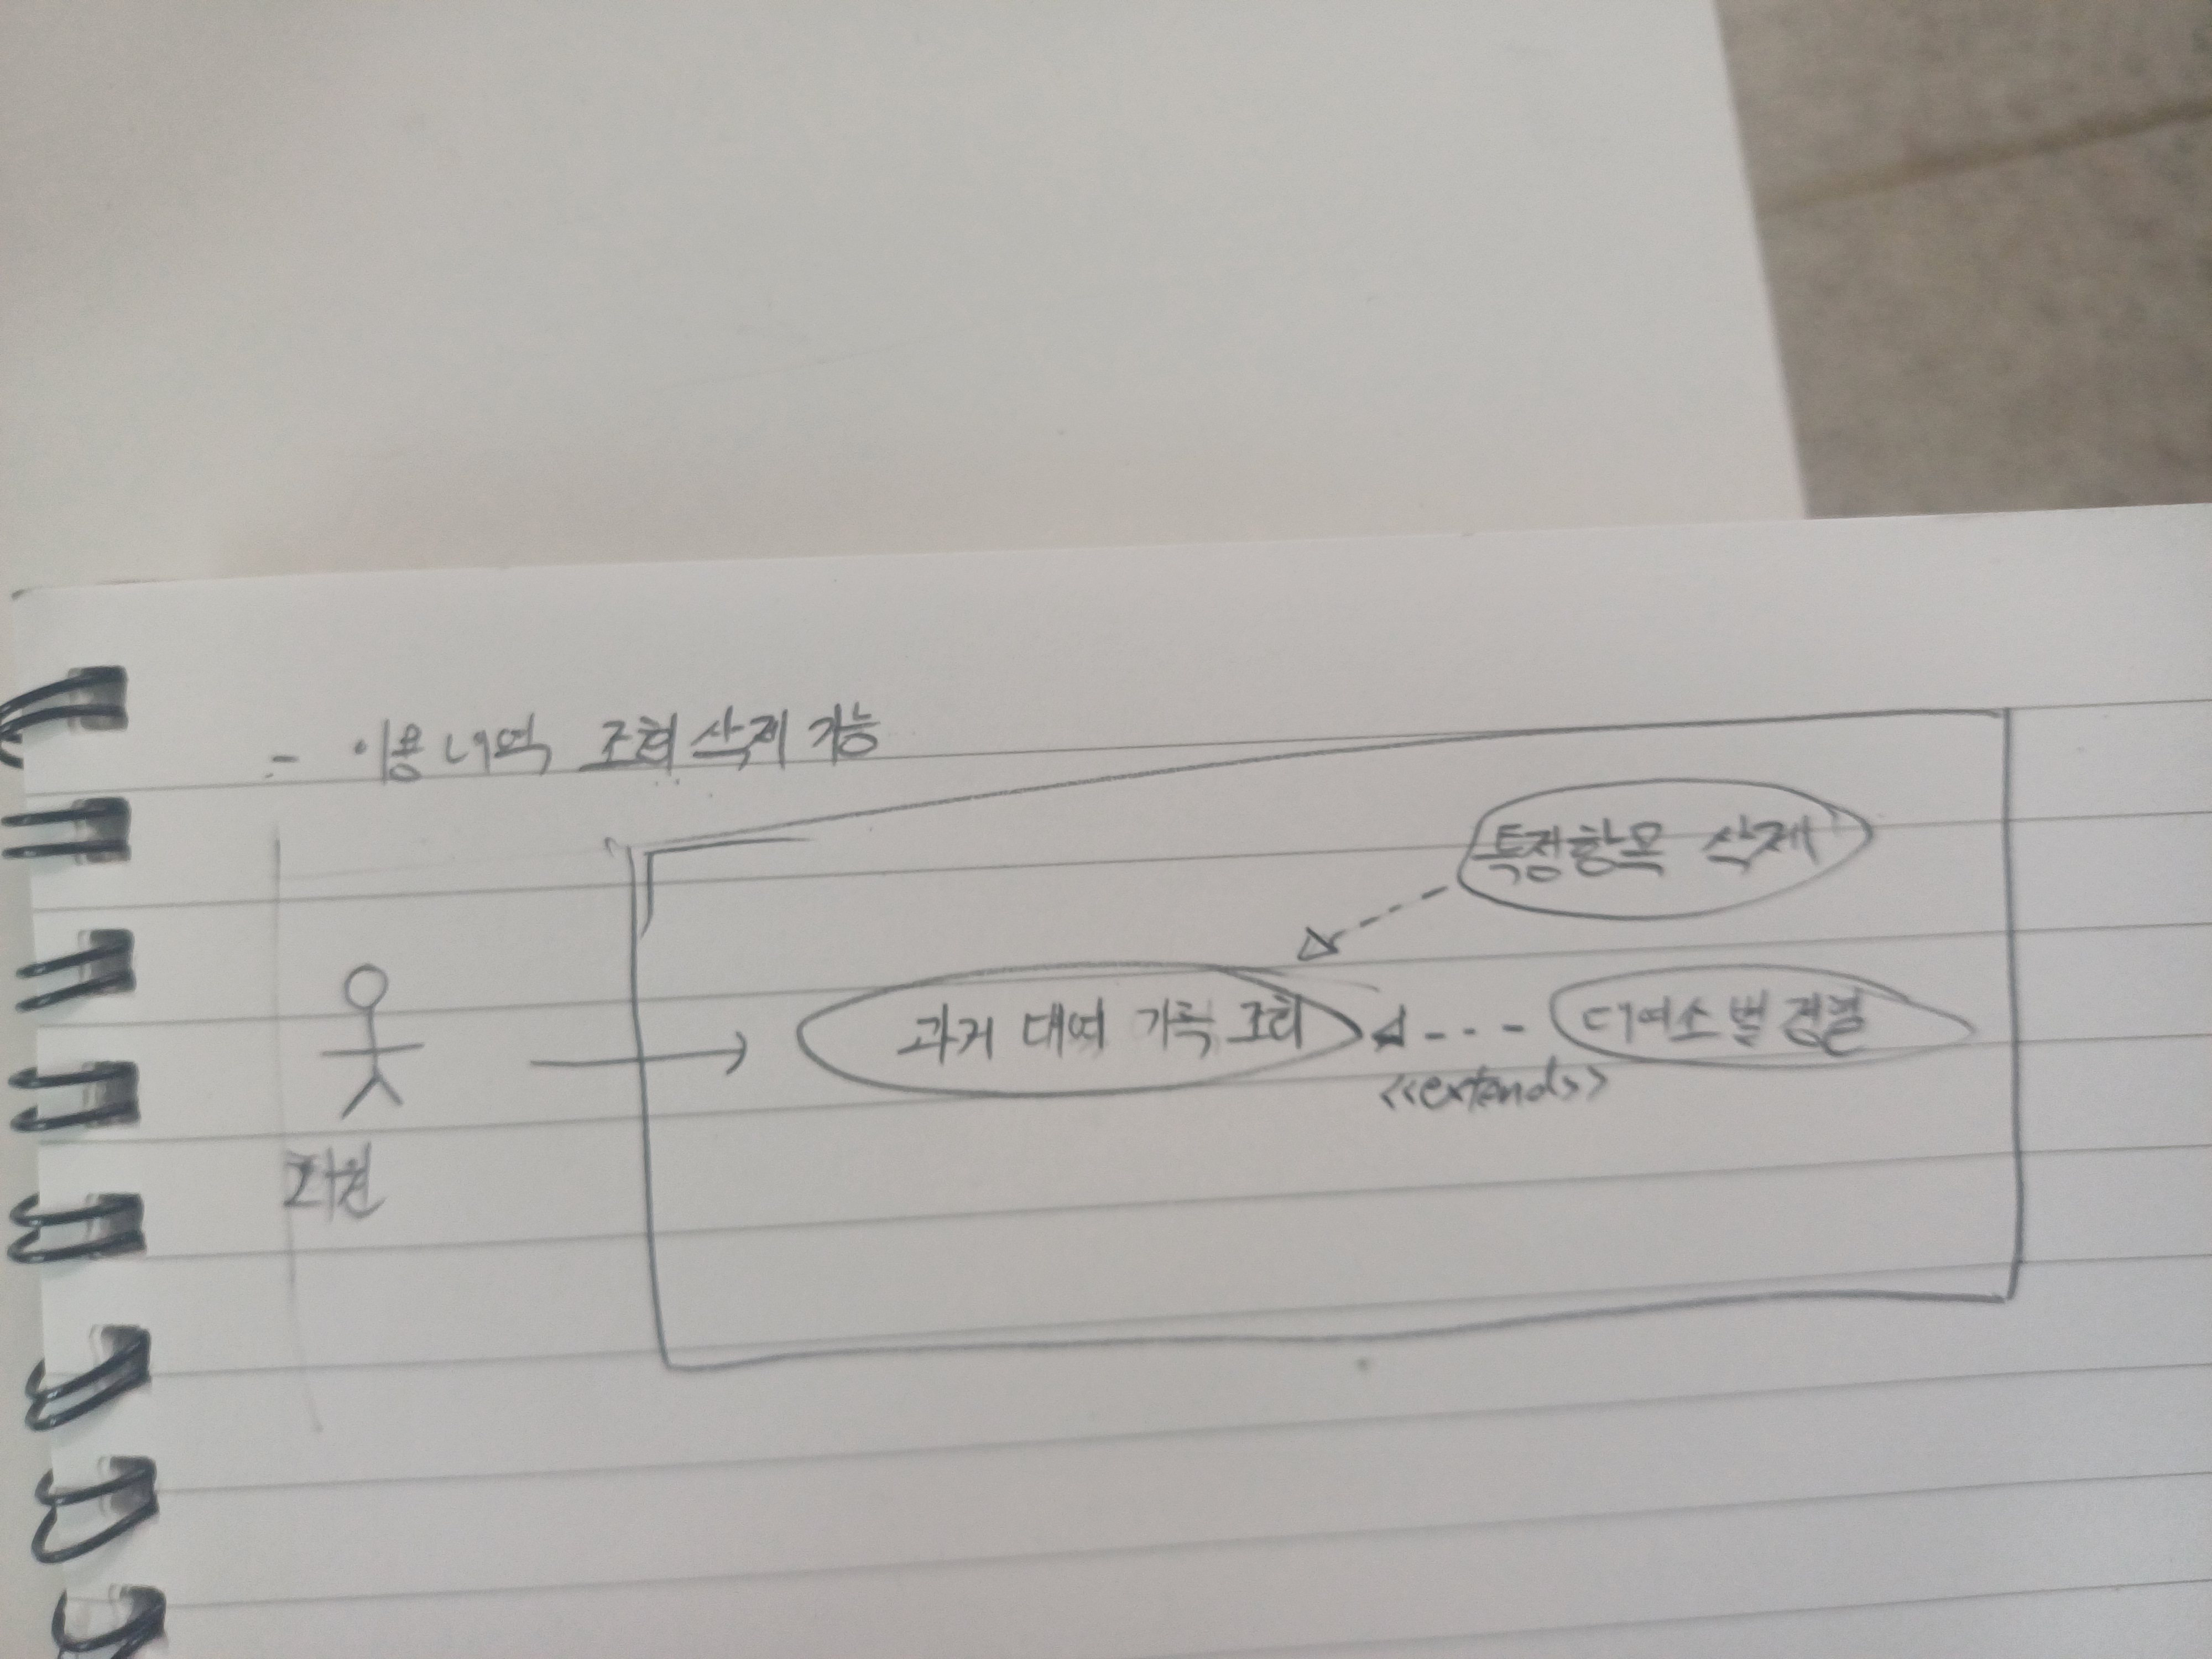 - 이용 내역 조회 삭제 기능
특정항목 삭제
과거 대여 기록 조회
대여소별 정렬
<<extends>>
회원